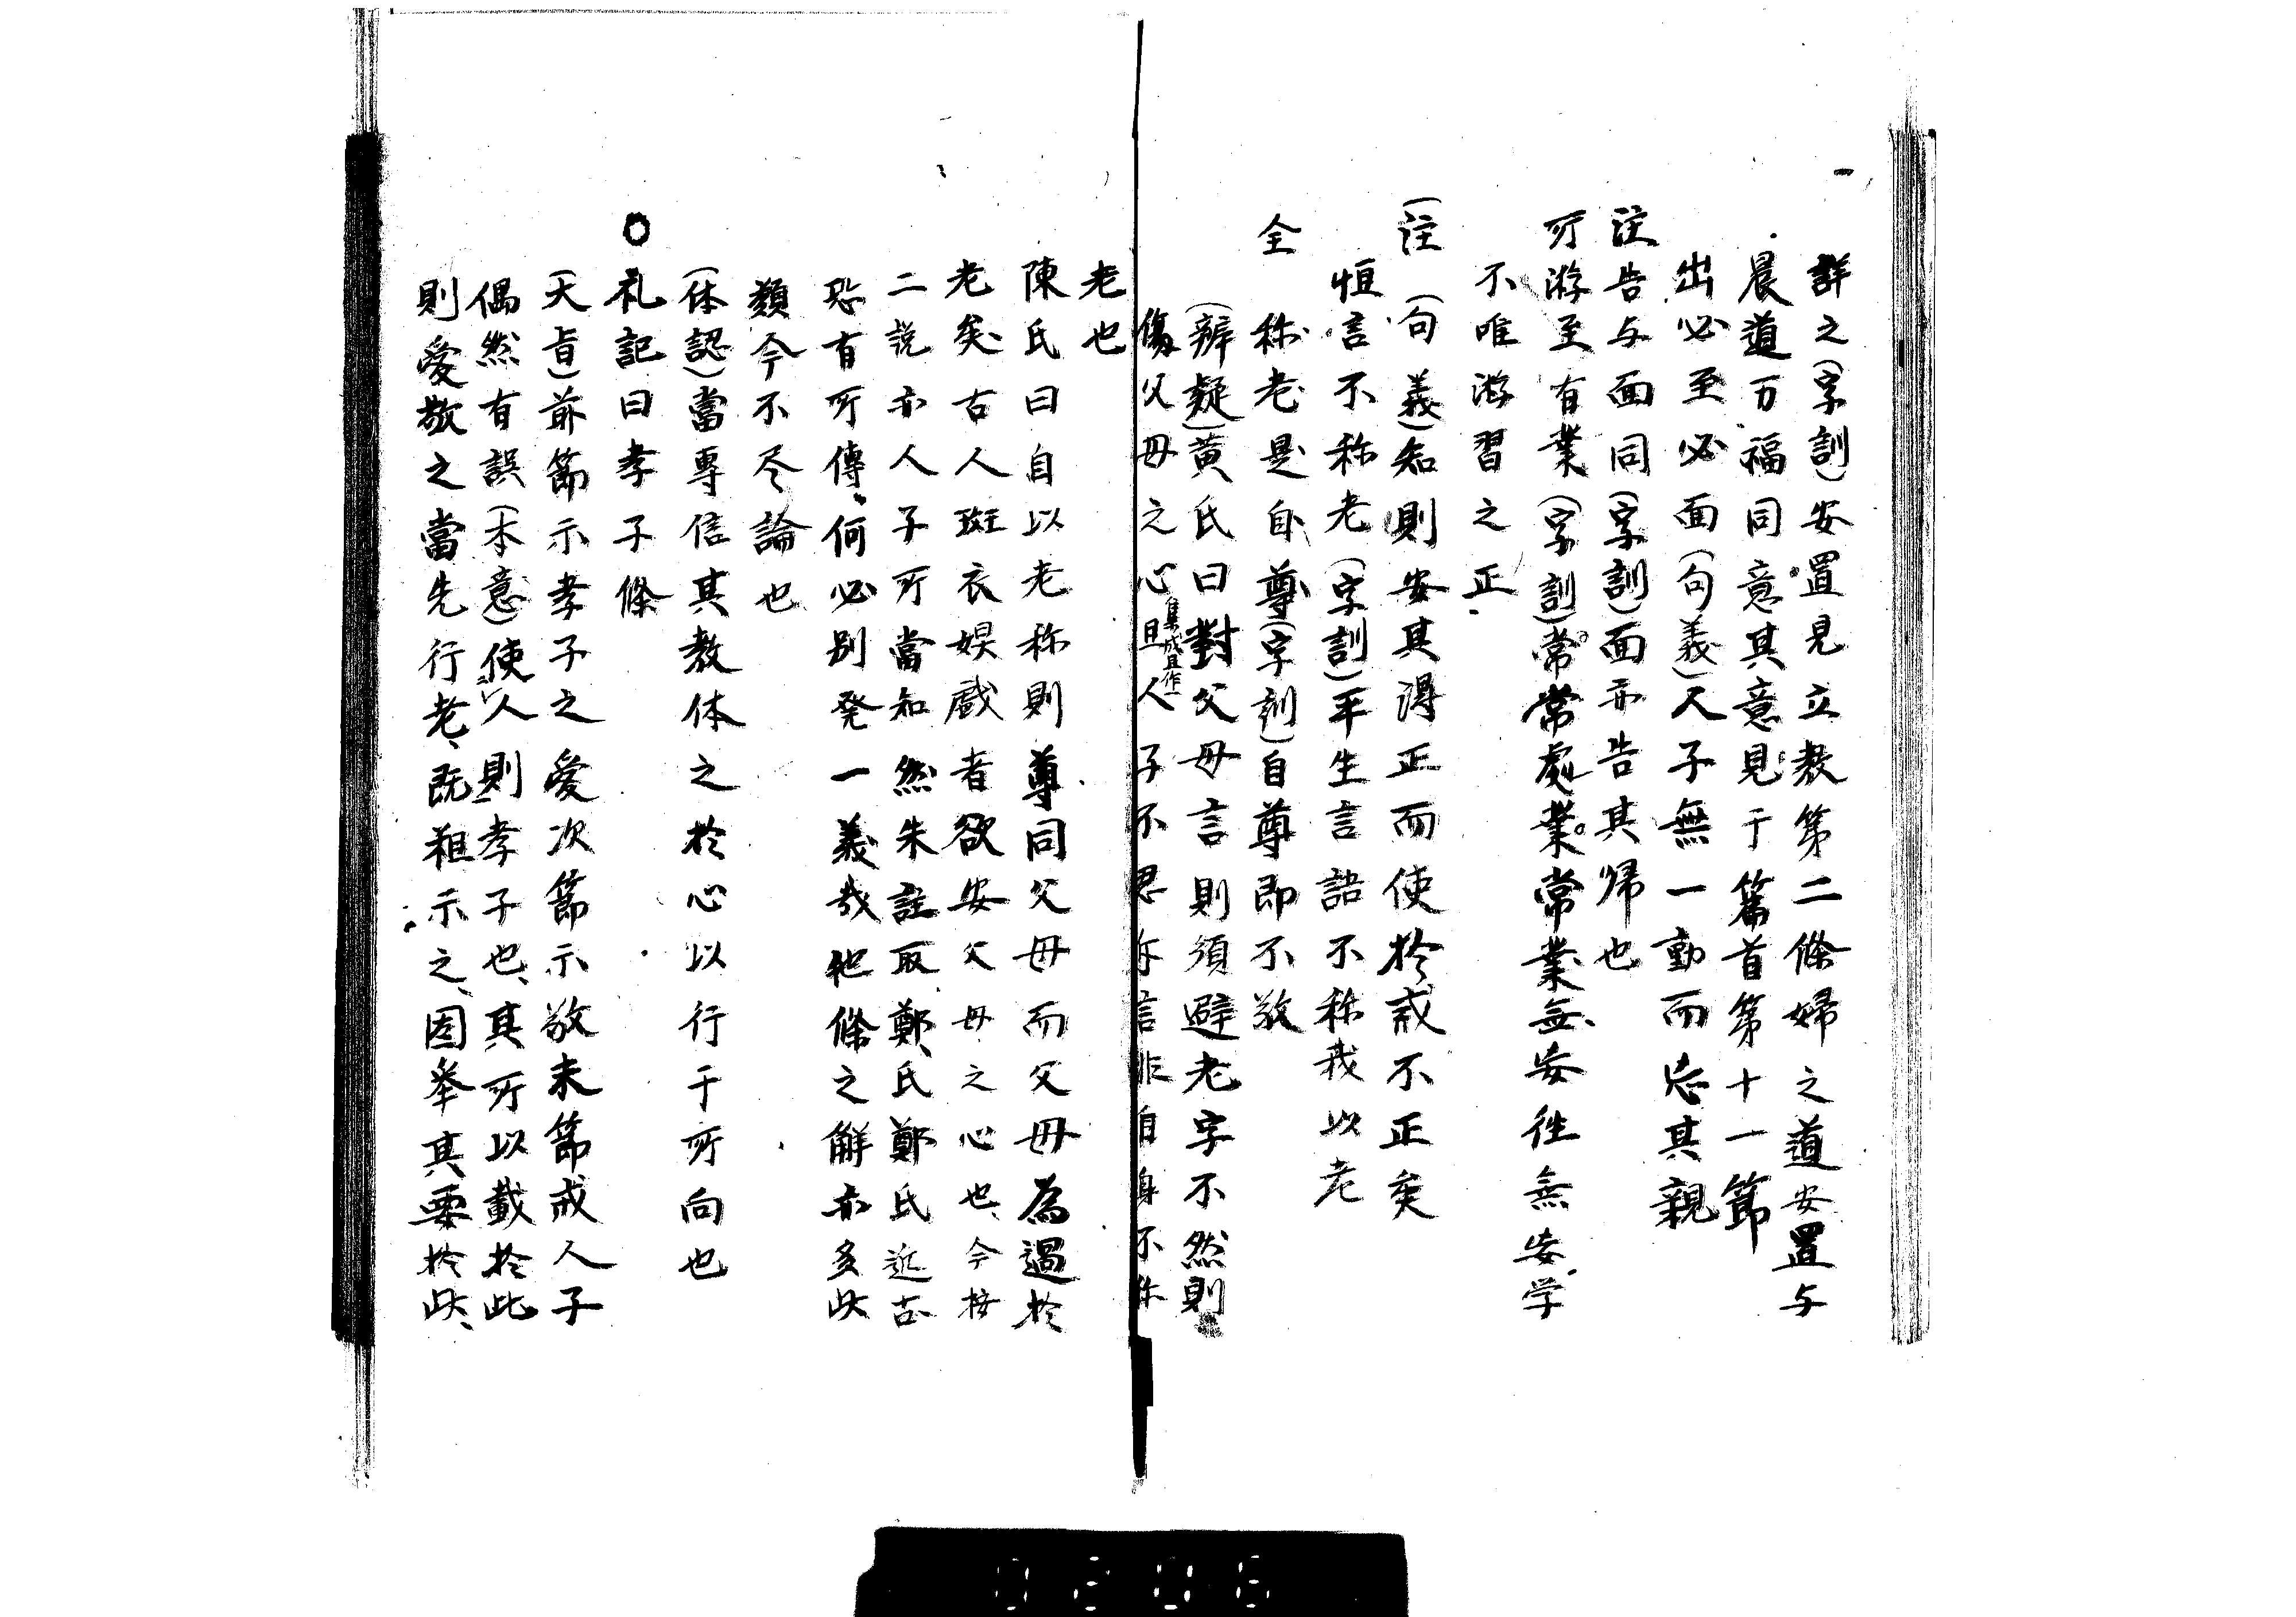 詳之(字訓)安置見立教第二條婦之道安置与
晨道万福同意其意見于篇首第十一節
出必至必面(句義)人子無一動而忘其親
注告与面同(字訓)面亦告其帰也
所游至有業(字訓)常常處業常業無安徃無安学
不唯游習之正
(註(句義)知則安其得正而使於戒不正矣
恒言不称老(字訓)平生言語不称我以老
全称老是自尊(字訓)自尊即不敬
(辨疑)黄氏曰對父母言則須避老字不然則
傷父母之心且集成且作一人子不思斥言非自身不称
老也
陳氏曰自以老称則尊同父母而父母為過於
老矣古人斑衣娯戲者欲安父母之心也今按
二説亦人子所當知然朱註取鄭氏鄭氏近古
恐有所傳何必別発一義哉他條之解亦多此
類今不尽論也
(体認)當專信其教体之於心以行于所向也
○礼記曰孝子條
(大旨)前節示孝子之愛次節示敬末節戒人子
偶然有誤(本意)使人則孝子也其所以載於此
則愛敬之當先行老既粗示之因举其要於此